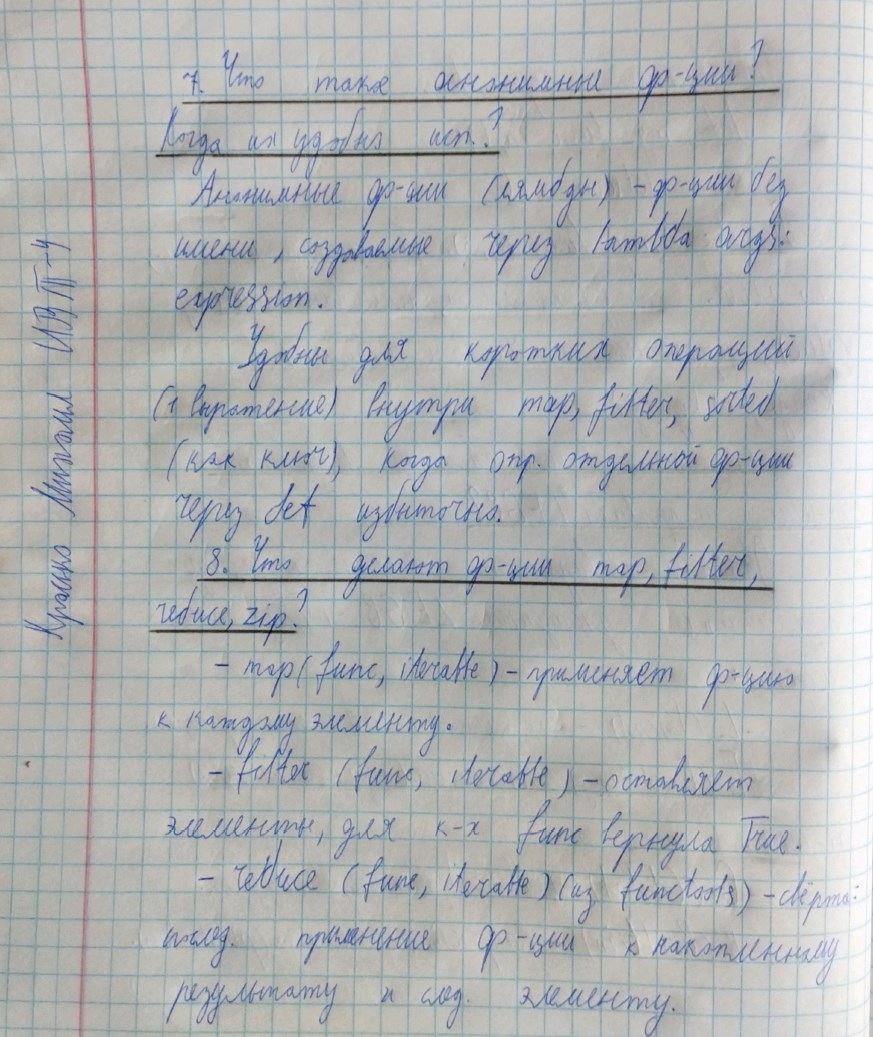 7. Что такое анонимные ф-ции?
Когда их удобно исп.?
Анонимные ф-ции (лямбды) - ф-ции без
имени, создаваемые через lambda args:
expression.
Удобны для коротких операций
(1 выражение) внутри map, filter, sorted
(как ключ), когда опр. отдельной ф-ции
через def избыточно.
8. Что делают ф-ции map, filter,
reduce, zip?
- map(func, iterable) - применяет ф-цию
к каждому элементу.
- filter (func, iterable) - оставляет
элементы, для к-х func вернула True.
- reduce (func, iterable) (из functools) - свёртка:
послед. применение ф-ции к накопленному
результату и след. элементу.
Михаил ИВТ-4